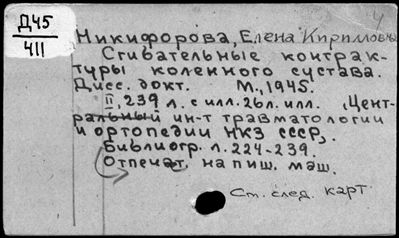 Д45
411
4
Никифорова, Елена Кирилловна
Сгибательные контрак-
туры коленного сустава.
Дисс. докт. М., 1945.
II, 239 л. с илл. 26л. илл. (Цент-
ральный ин-т травматологии
и ортопедии НКЗ СССР).
Библиогр. л. 224-239.
Отпечат. на пиш. маш.
Ст. след. карт.